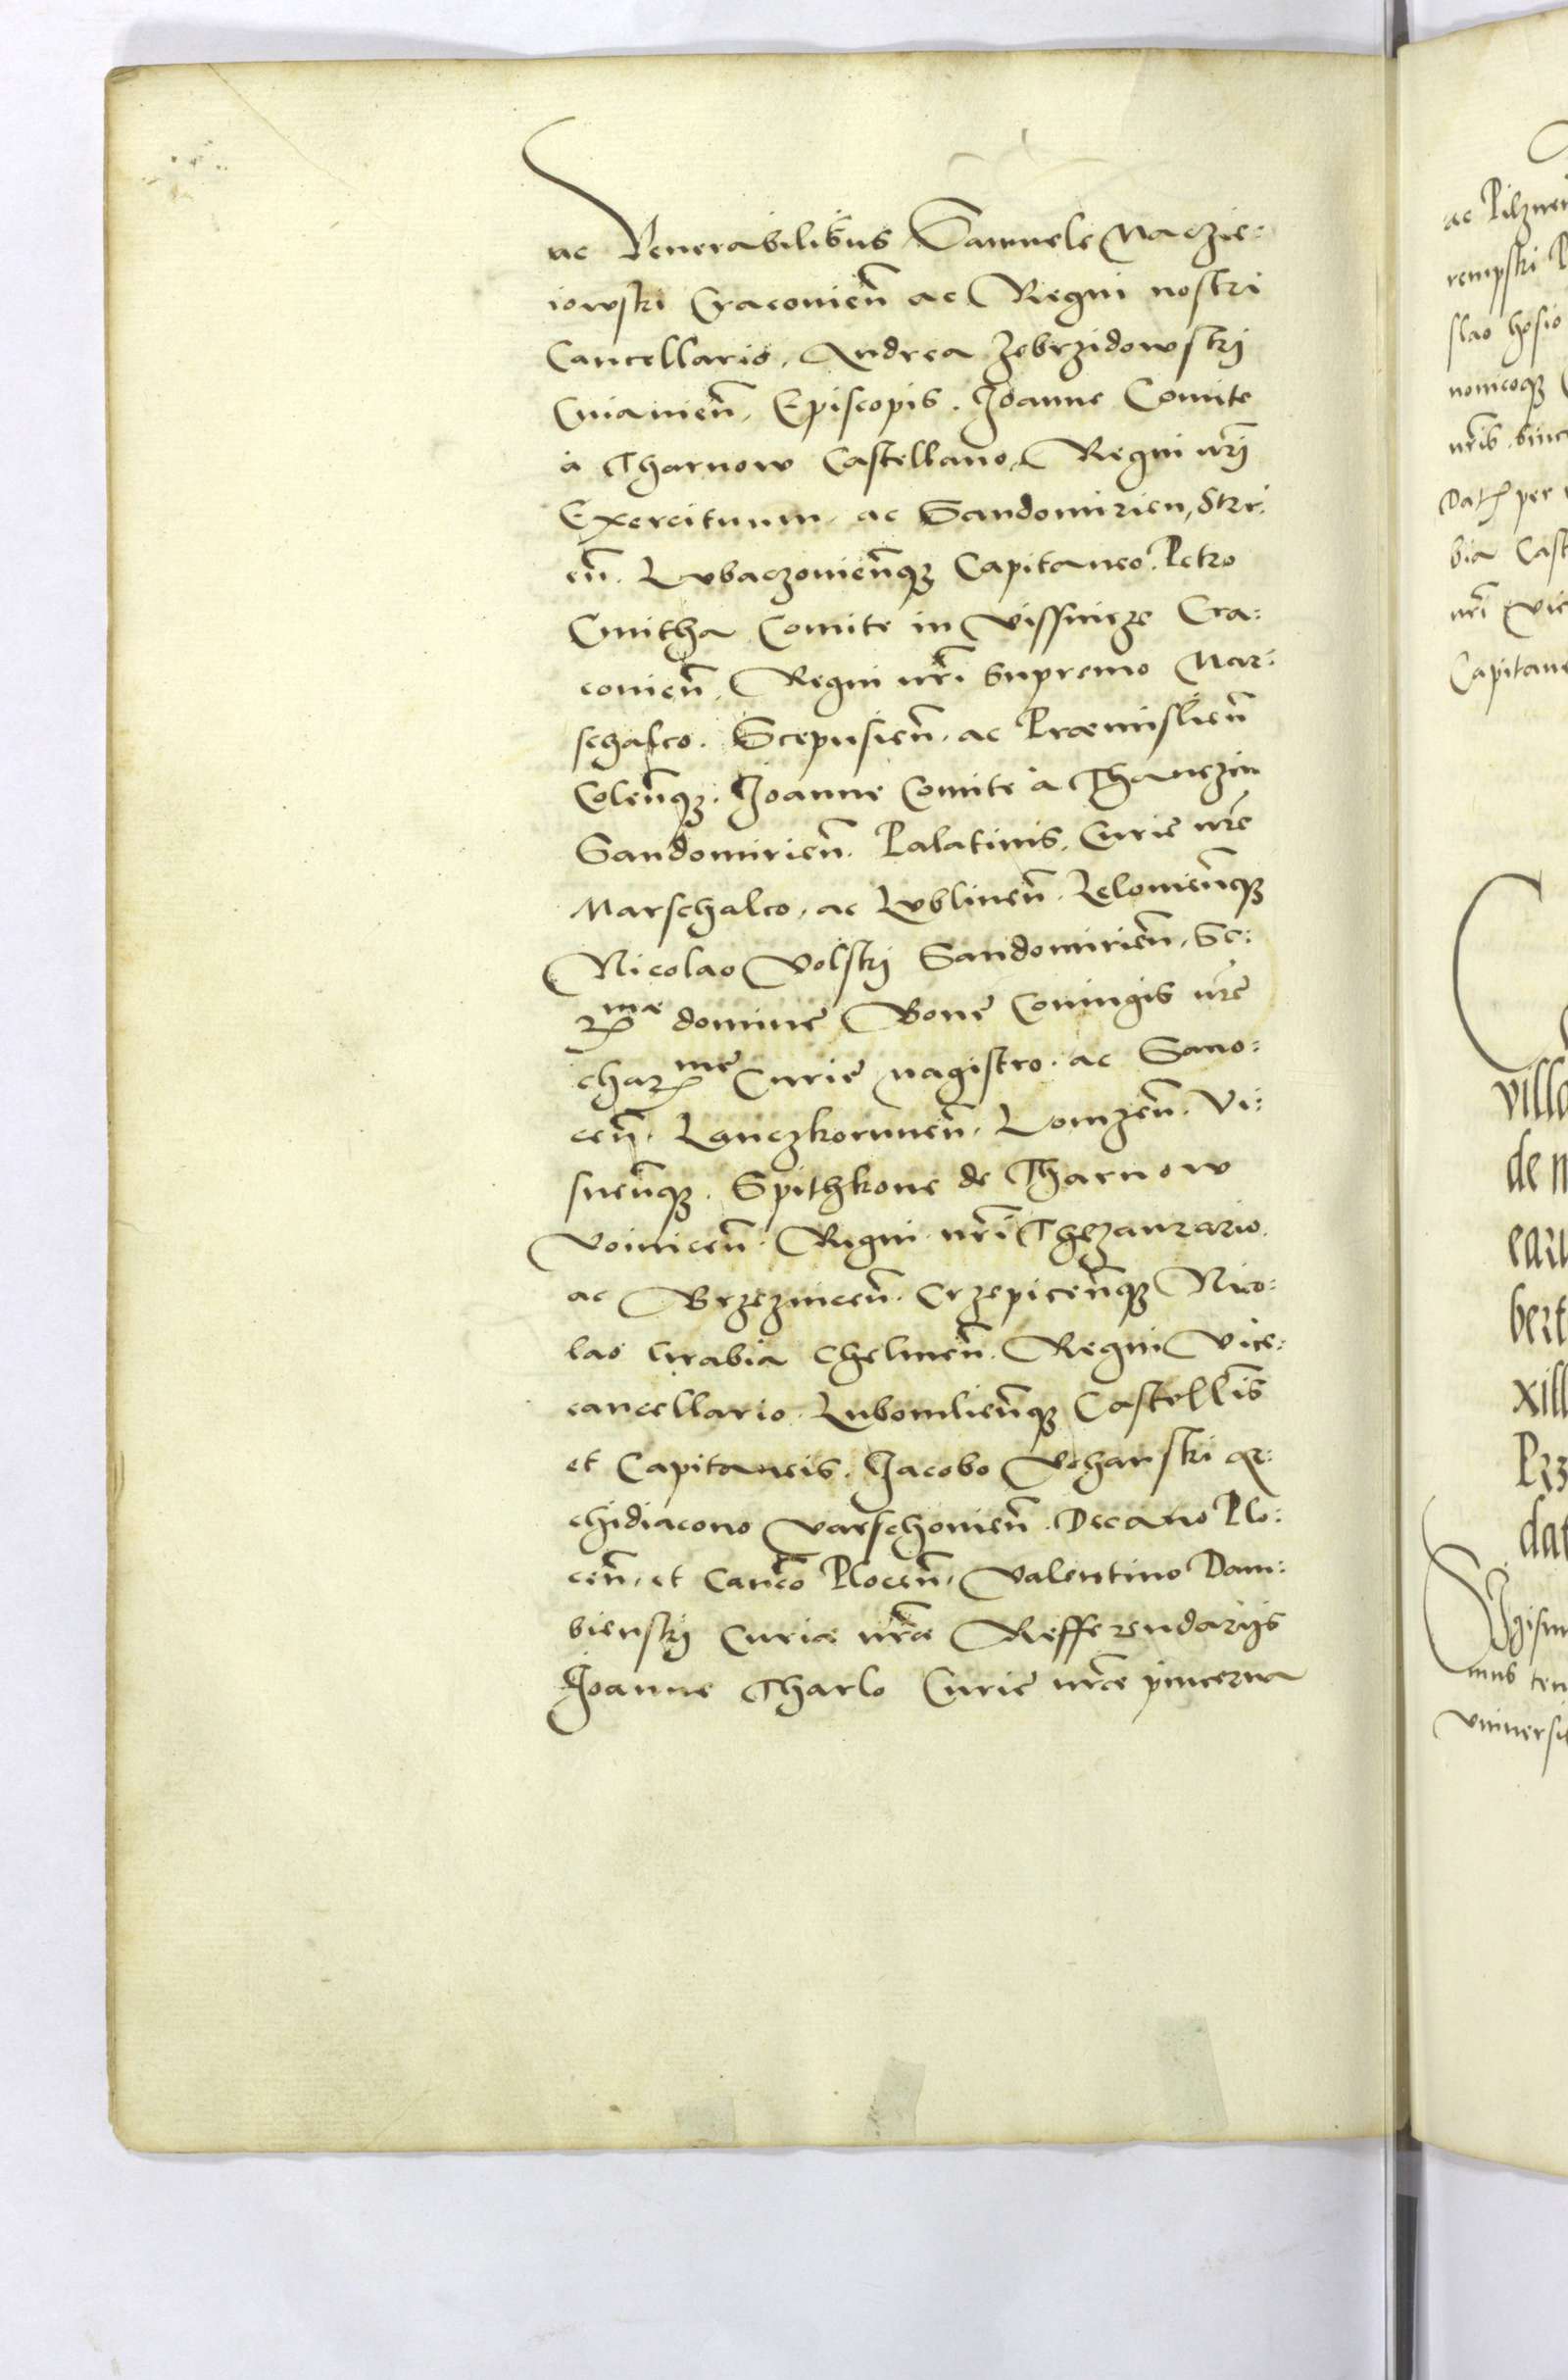 ac Venerabilibus Samuele Maczie:
iowski Cracovien̄ ac Regni nostri
Cancellario, Andrea Zebrzidowskij
Cuiavien̄, Episcopis. Joanne Comite
à Tharnow Castellano, Regni nr̄i
Exercituum, ac Sandomirien, Stri:
en̄. Lubaczovien̄q₃ Capitaneo. Petro
Cmitha Comite in Vissnicze Cra:
covien̄, Regni nr̄i Supremo Mar:
schalco. Scepusien̄. ac Præmislien̄
Colen̄q₃. Joanne Comite à Thanczin
Sandomirien̄. Palatinis, Curie nr̄e
Marschalco, ac Lublinen̄. Lelovien̄q₃
Nicolao Volskij Sandomirien̄, Se:
r mæ domine Bone Coniugis nr̄e
char me Curie magistro. ac Sano:
cen̄. Lanczkorunen̄. Lomzen̄. Vi:
snen̄q₃. Spithkone de Tharnow
Voinicen̄. Regni nr̄i Thezaurario.
ac Brzeznicen̄. Crzepicen̄q₃ Nico:
lao Grabia Chelmen̄. Regni Vice:
cancellario. Lubomlien̄q₃ Castell̄is
et Capitaneis. Jacobo Uchanski ar:
chidiacono Varschovien̄. Decano Plo:
cen̄, et Canco Plocen̄, Valentino Dam:
bienskij Curiæ nr̄æ Refferendarijs
Joanne Tharlo Curie nr̄æ pincerna
ac Pilzne
rempski
slao hosio
nonicoq₃
nr̄is. since
Dat per
bia Cast
nr̄i Vic
Capitan
villa
de
bert
xill
dat
mus
universi